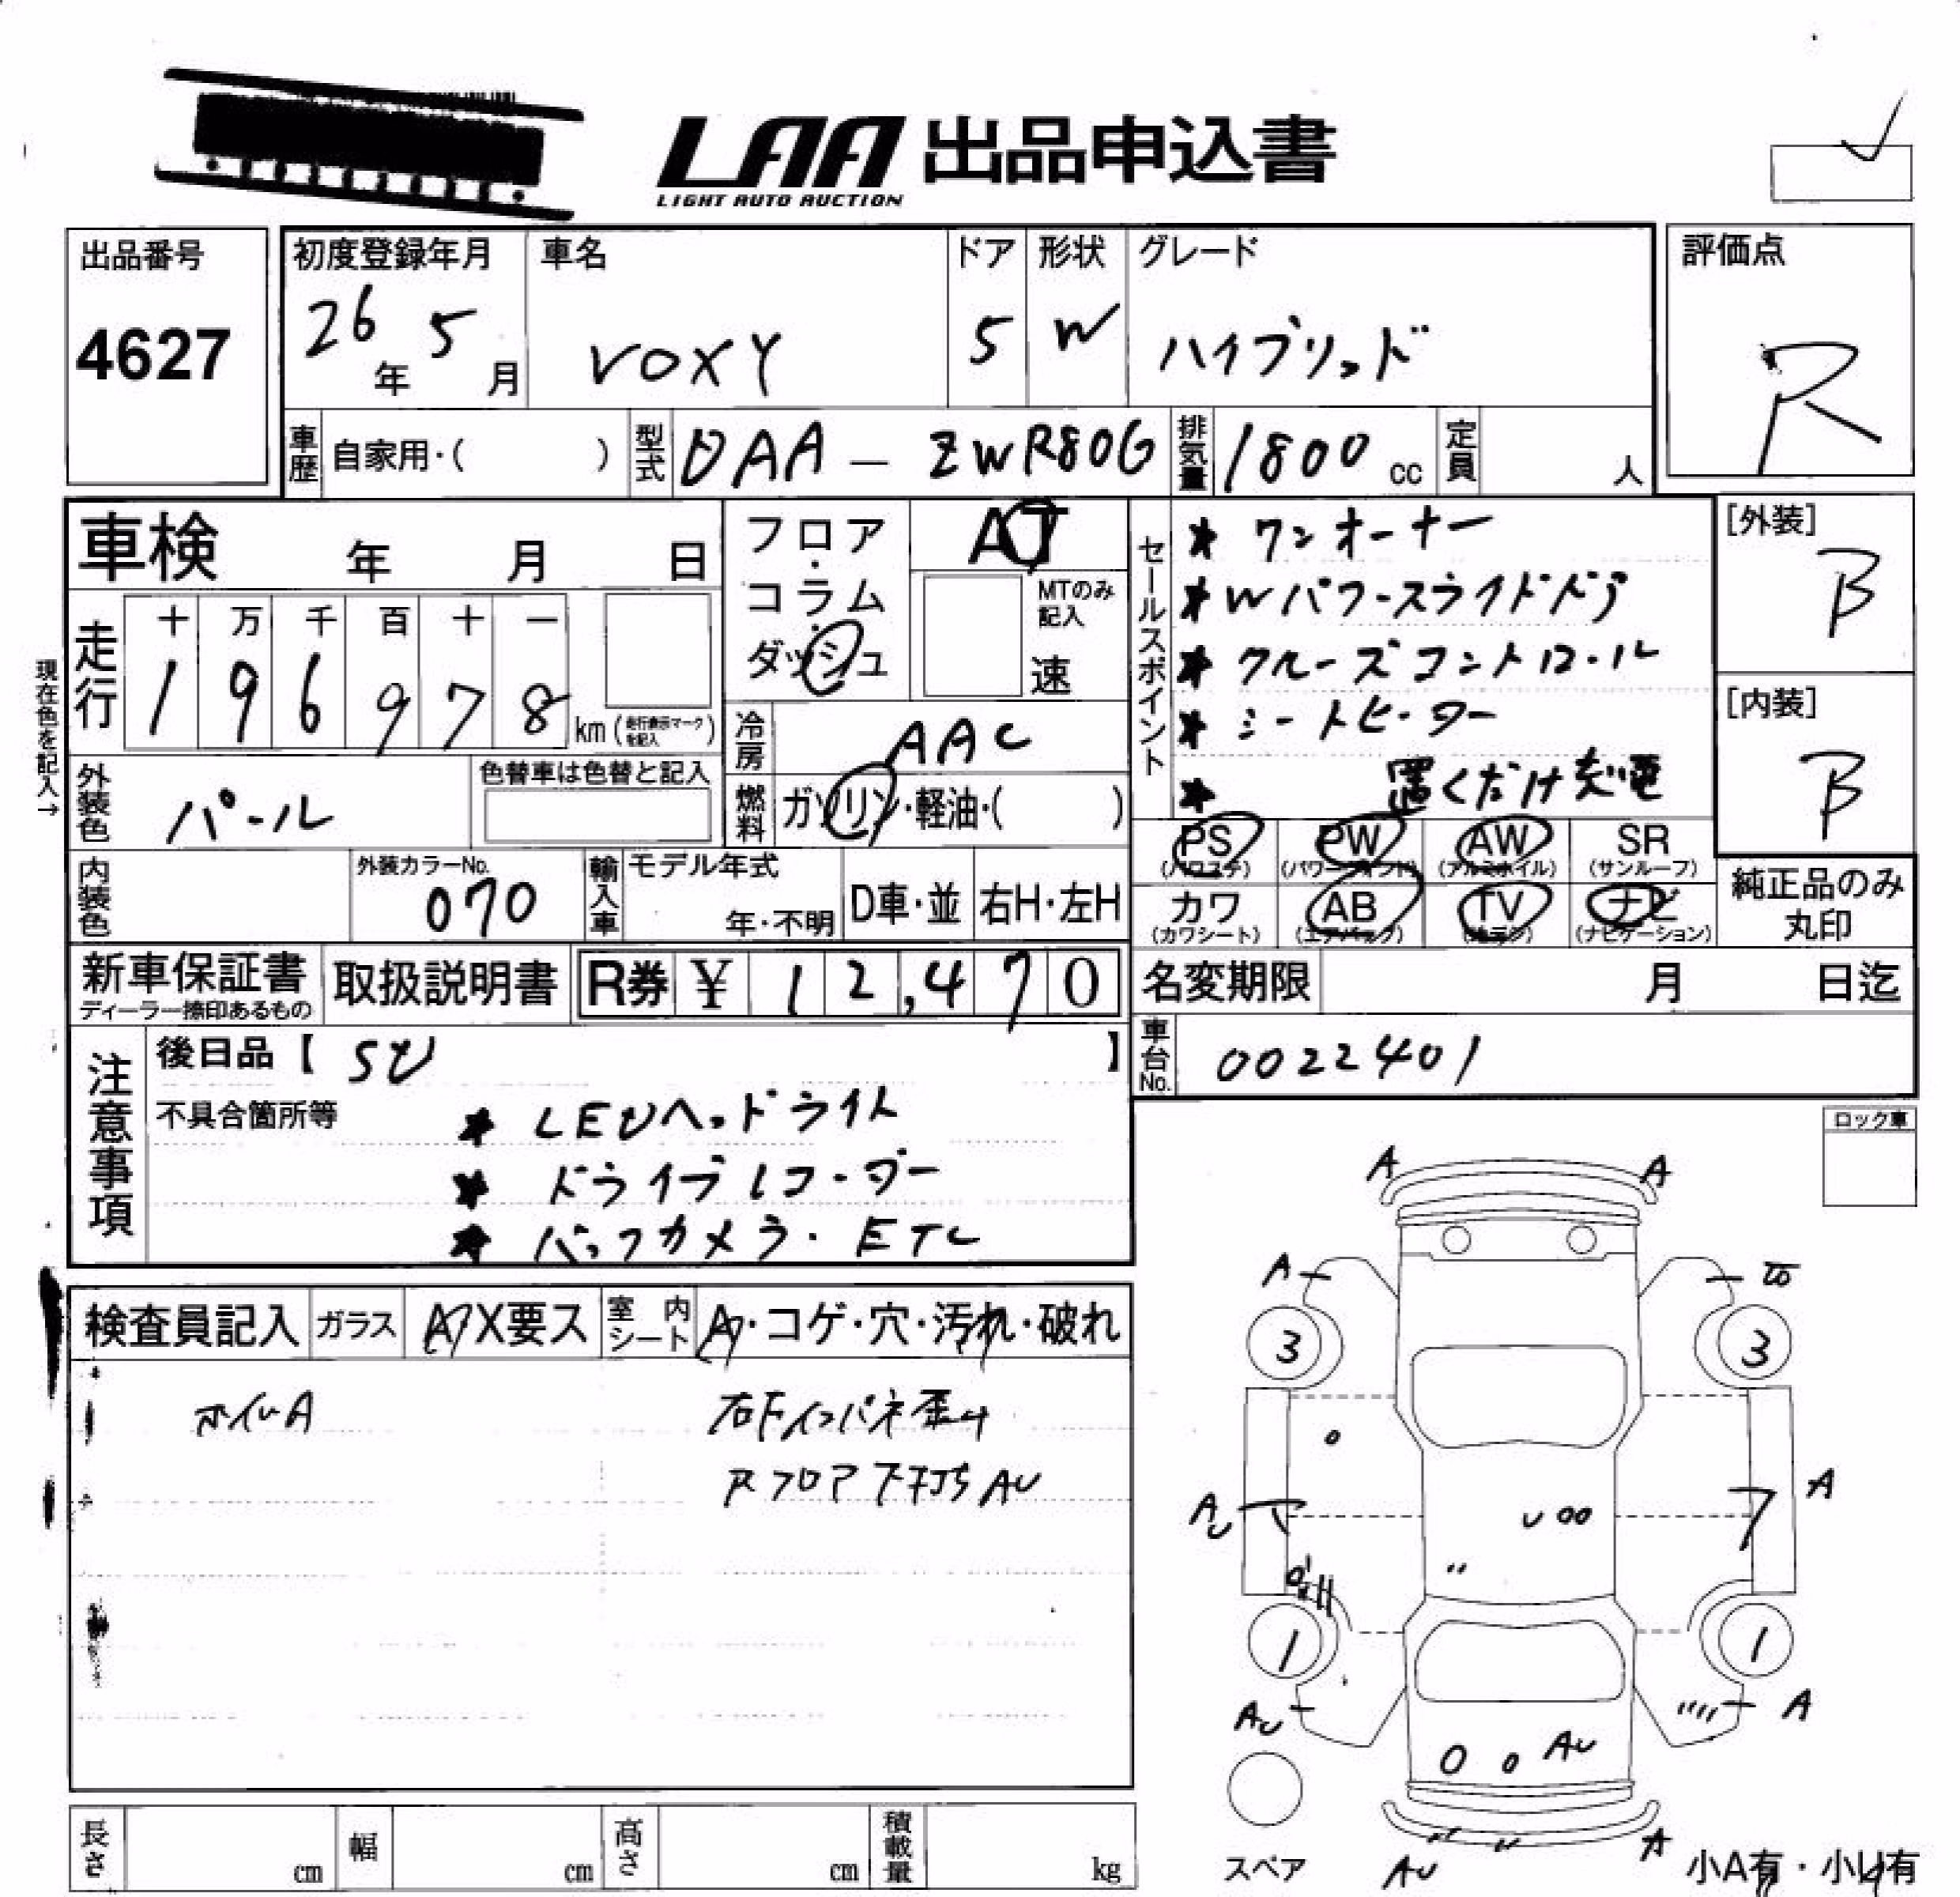 LAA 出品申込書
LIGHT AUTO AUCTION
出品番号
4627
初度登録年月
26年 5月
車名
VOXY
ドア
5
形状
W
グレード
ハイブリッド
評価点
R
車歴 自家用・( )
型式 DAA - ZWR80G
排気量 1800 cc
定員 人
車検 年 月 日
フロア・コラム・ダッシュ
AT
MTのみ記入
速
セールスポイント
★ ワンオーナー
★ Wパワースライドドア
★ クルーズコントロール
★ シートヒーター
★ 置くだけ充電
[外装]
B
[内装]
B
現在色を記入→
走行
十 万 千 百 十 一
1 9 6 9 7 8 km (走行表示マークを記入)
冷房 AAC
外装色 パール
色替車は色替と記入
燃料 ガソリン・軽油・( )
PS (パワステ)
PW (パワーウインド)
AW (アルミホイル)
SR (サンルーフ)
カワ (カワシート)
AB (エアバック)
TV (テレビ)
ナビ (ナビゲーション)
純正品のみ丸印
内装色
外装カラーNo.
070
輸入車
モデル年式
年・不明
D車・並
右H・左H
新車保証書
ディーラー捺印あるもの
取扱説明書
R券 ¥ 12,470
名変期限 月 日迄
車台No. 0022401
注意事項
後日品【 SD 】
不具合箇所等
★ LEDヘッドライト
★ ドライブレコーダー
★ バックカメラ・ETC
ロック車
検査員記入
ガラス A X要ス
室内シート A・コゲ・穴・汚れ・破れ
ホイルA
右Fインパネ歪み
Rフロア下打ち AU
A A
A
3 3
A
AU
1 1
AU A
AU
AU A
スペア
小A有・小U有
長さ cm
幅 cm
高さ cm
積載量 kg